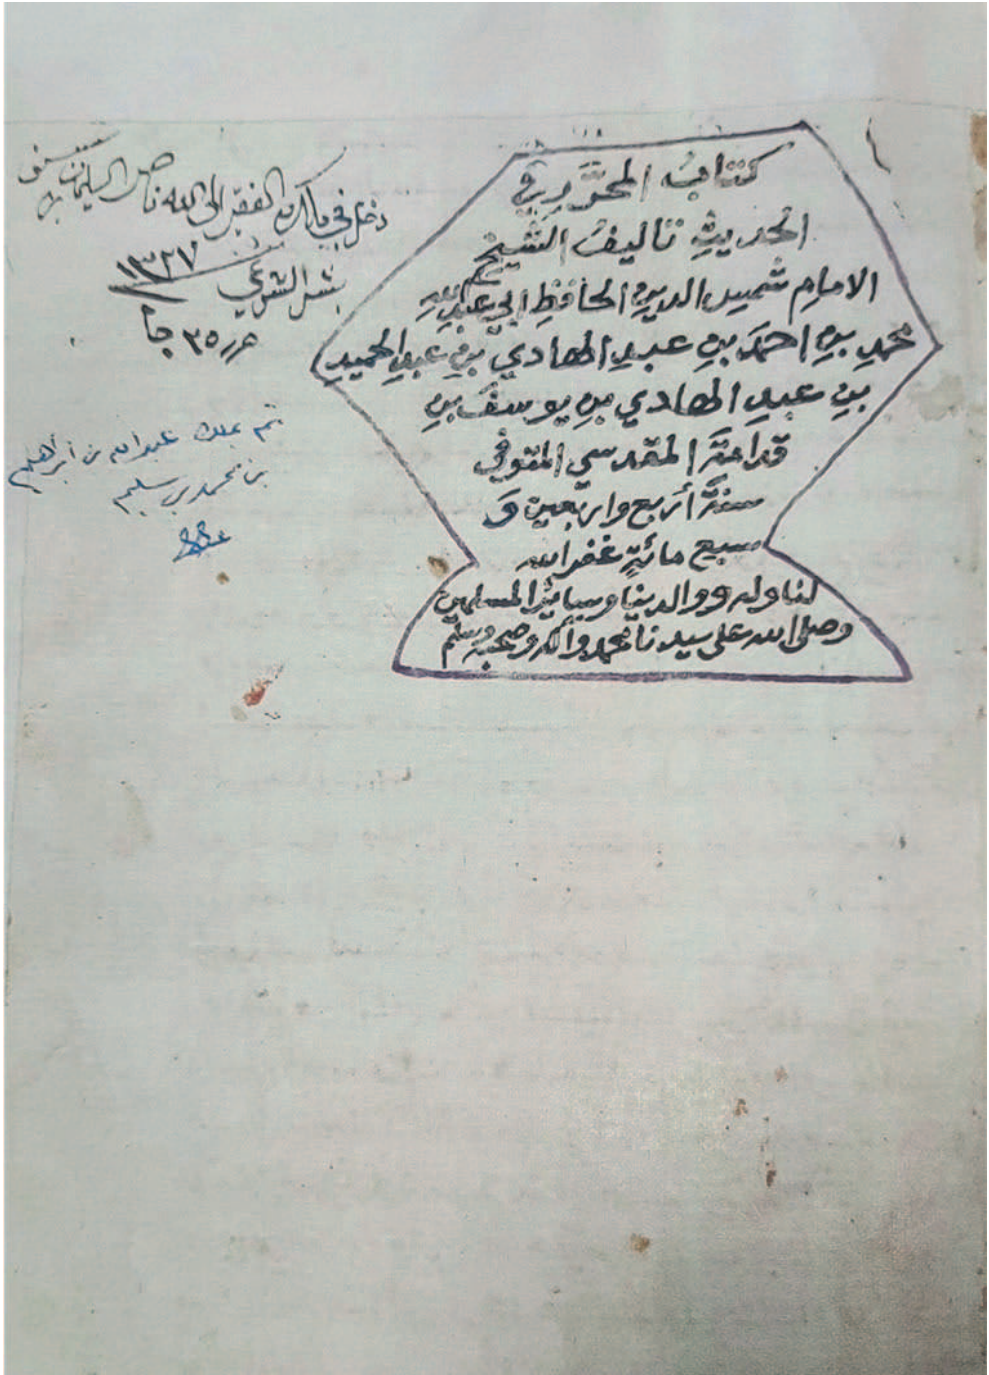 كتاب المحرَّر في
الحديثِ تاليفُ الشيخ
الامامِ شمس الدين الحافظِ ابي عبدِ الله
محمدِ بنِ احمَد بنِ عبدِ الهادي بنِ عبدِ الحميدِ
بنِ عبدِ الهادي بنِ يوسفَ بنِ
قدامةَ المقدسي المتوفى
سنةَ أربع واربعين وَ
سبع مائةٍ غفر الله
لنا وله ووالدينا وسائر المسلمين
وصلى الله على سيدنا محمد وآله وصحبه وسلم
دخل في ملك الفقير الى الله ناصر السليمان بن سيف
بثمن الشرعي ١٣٣٧
٣٥
ثم بملك عبدالله بن ابراهيم
بن محمد بن سليم